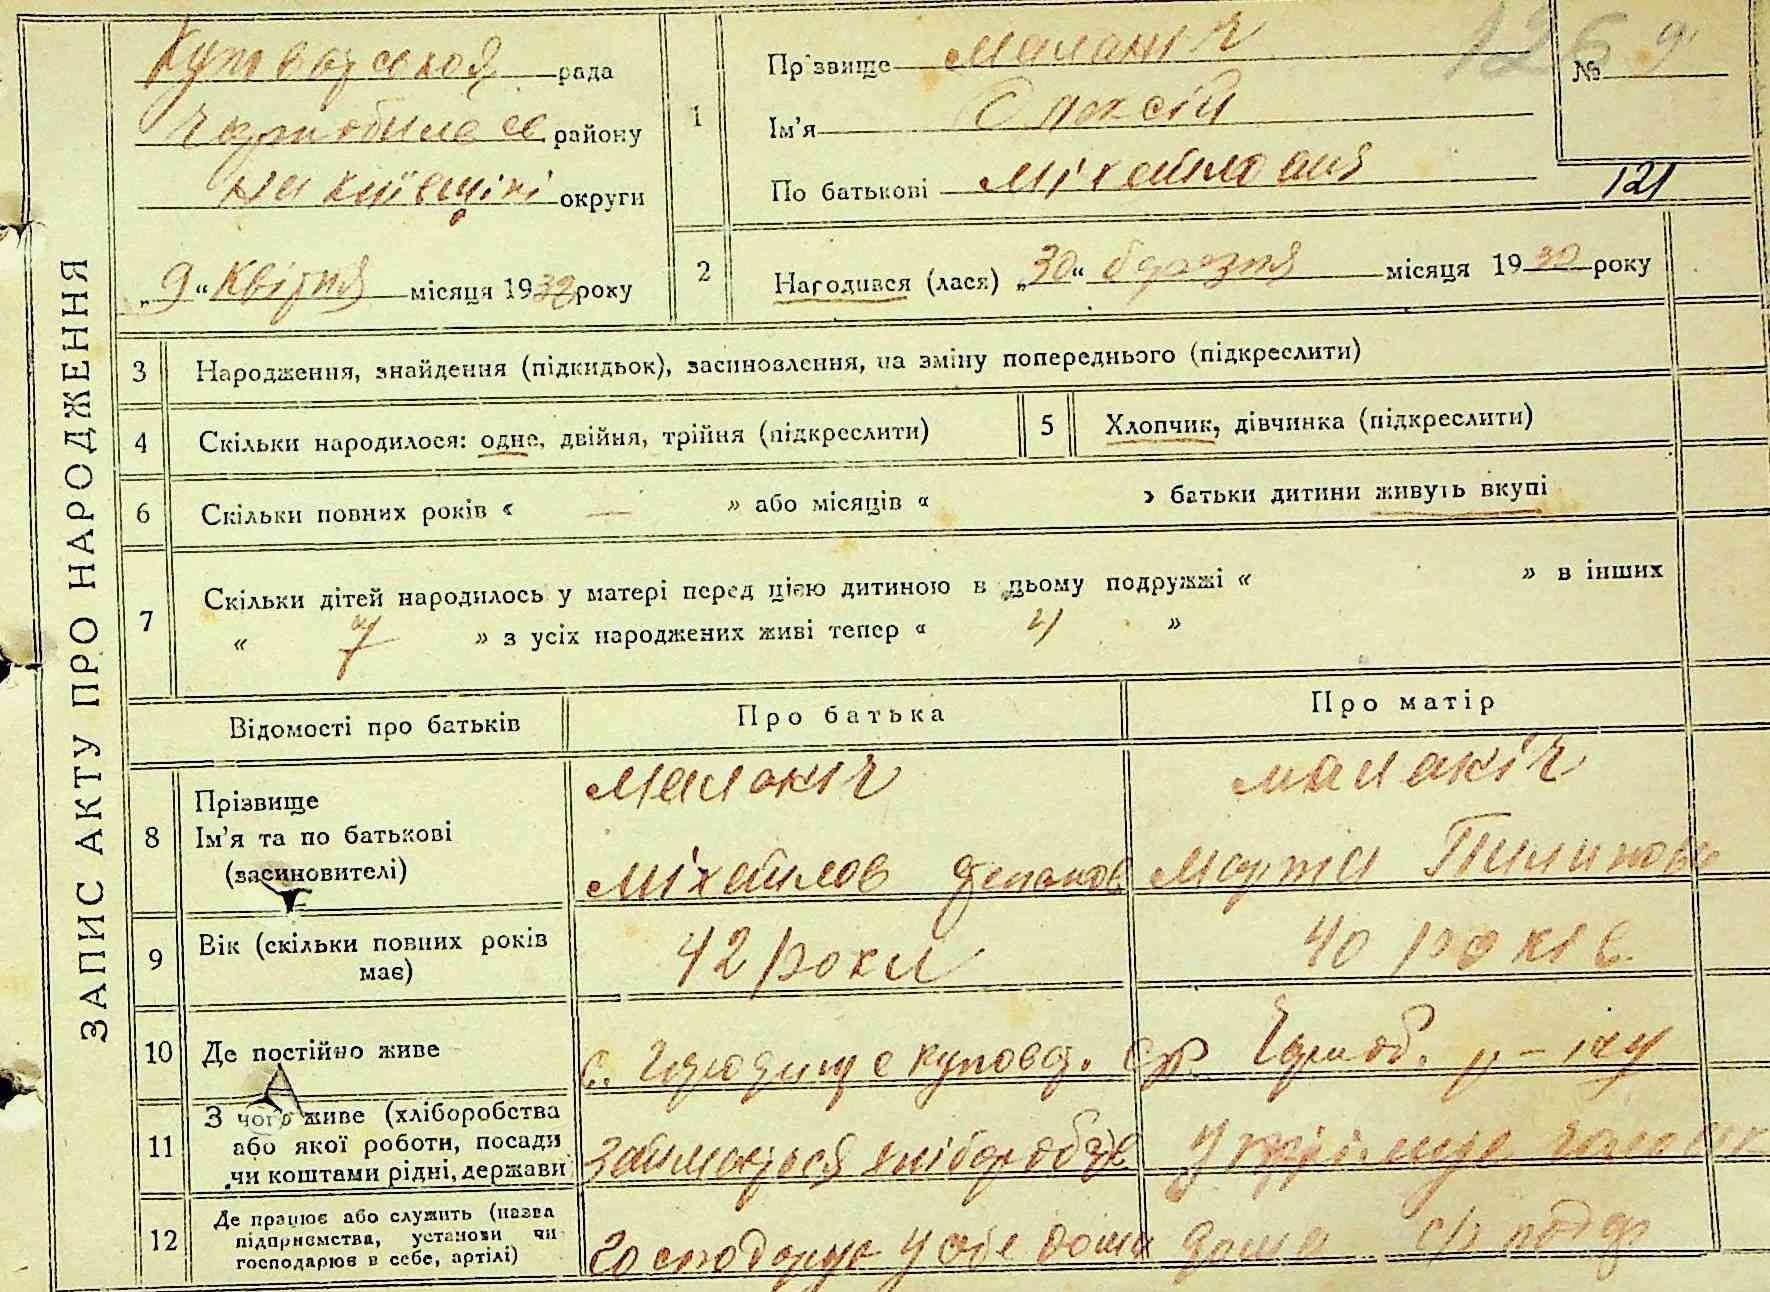 ЗАПИС АКТУ ПРО НАРОДЖЕННЯ
рада
району
округи
„9“ Квітня місяця 1930 року
1
Прізвище
Ім'я Олексій
По батькові Міхайлович
№ 9
126
121
2 Народився (лася) „30“ березня місяця 1930 року
3 Народження, знайдення (підкидьок), засиновлення, на зміну попереднього (підкреслити)
4 Скільки народилося: одне, двійня, трійня (підкреслити)
5 Хлопчик, дівчинка (підкреслити)
6 Скільки повних років « — » або місяців « » батьки дитини живуть вкупі
7 Скільки дітей народилось у матері перед цією дитиною в цьому подружжі « » в інших
« 7 » з усіх народжених живі тепер « 4 »
Відомості про батьків
Про батька
Про матір
8 Прізвище
Ім'я та по батькові
(засиновителі)
Малакіч
Малакіч
Міхайлов
Марта
9 Вік (скільки повних років
має)
42 роки
40 років
10 Де постійно живе
с.
11 З чого живе (хліборобства
або якої роботи, посади
чи коштами рідні, держави
займається хлібороб
12 Де працює або служить (назва
підприємства, установи чи
господарює в себе, артілі)
Господарує у себе дома
дома